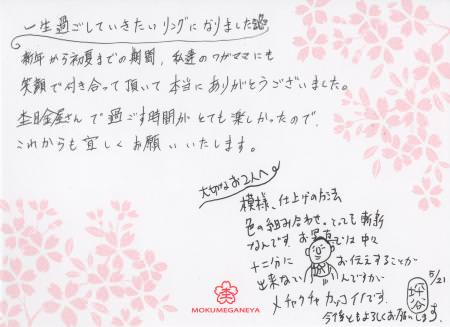 一生過ごしていきたいリングになりました
新年から初夏までの期間、私達のワガママにも
笑顔で付き合って頂いて本当にありがとうございました。
杢目金屋さんで過ごす時間がとても楽しかったので、
これからも宜しくお願いいたします。
大切なお2人へ
模様、仕上げの方法
色の組み合わせ。とっても斬新
なんです お写真では中々
十二分に お伝えすることが
出来ない んですが
メチャクチャカッコイイです。
今後ともよろしくお願いします。
5/21
MOKUMEGANEYA